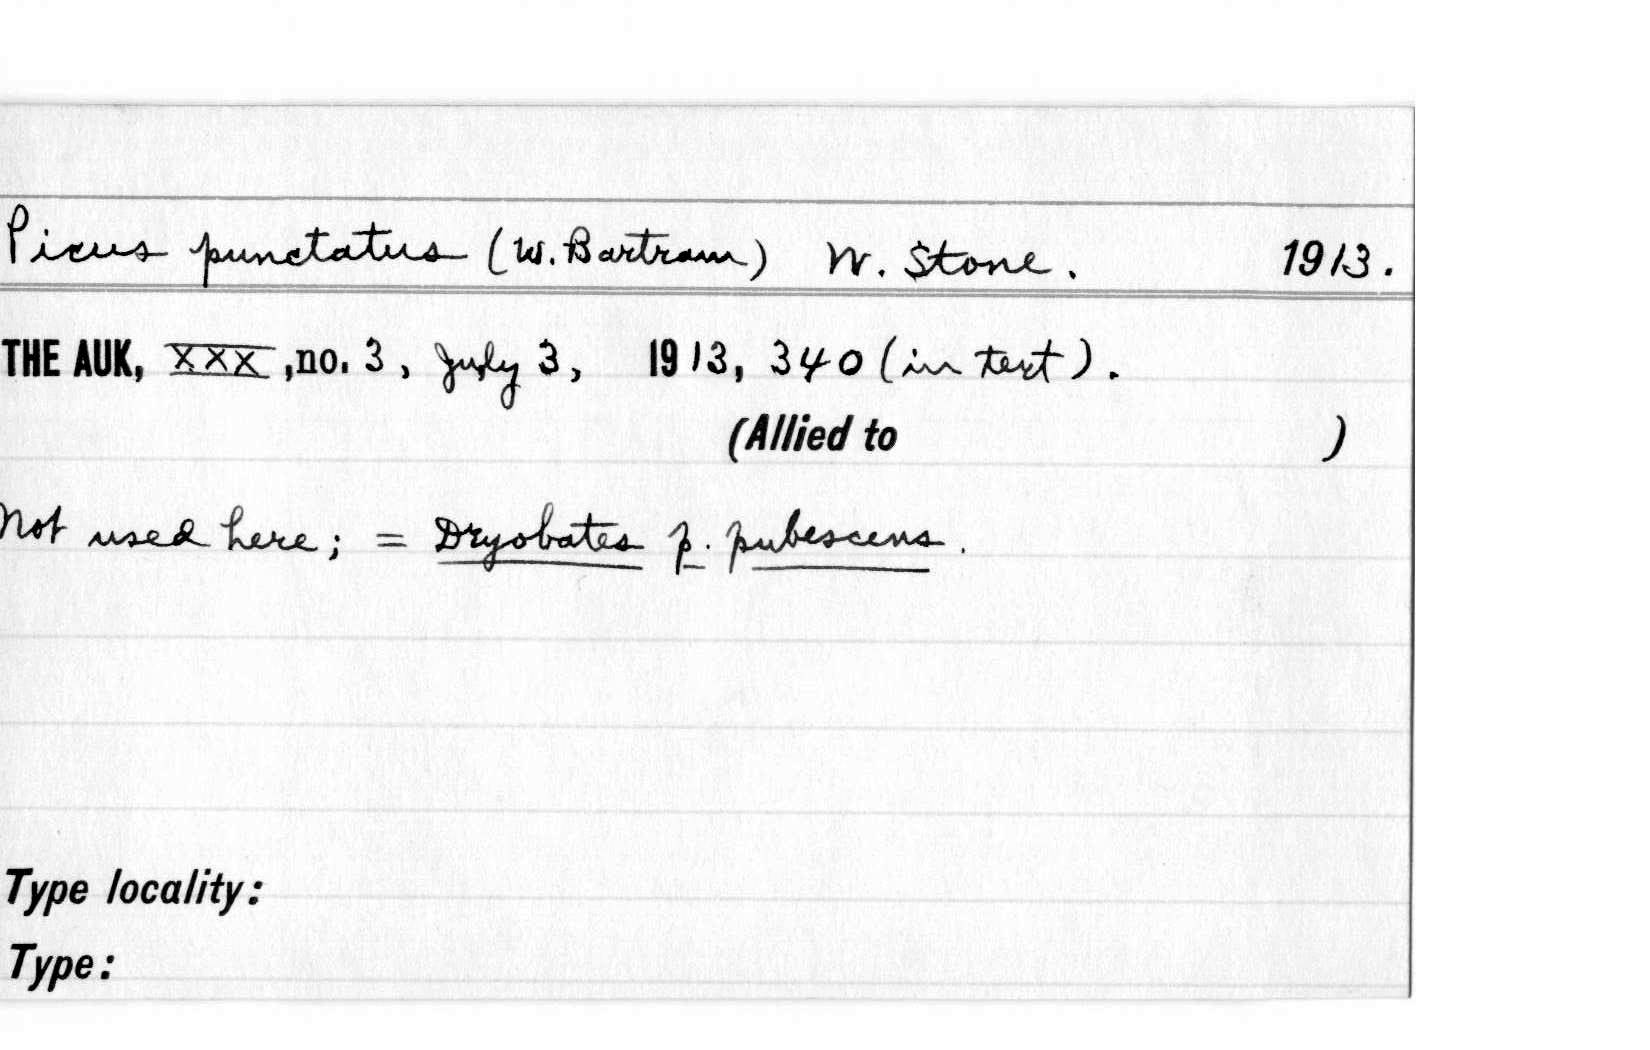 Picus punctatus (W. Bartram) W. Stone. 1913.
THE AUK, XXX, no. 3, July 3, 1913, 340 (in text).
(Allied to )
Not used here; = Dryobates p. pubescens.
Type locality:
Type: